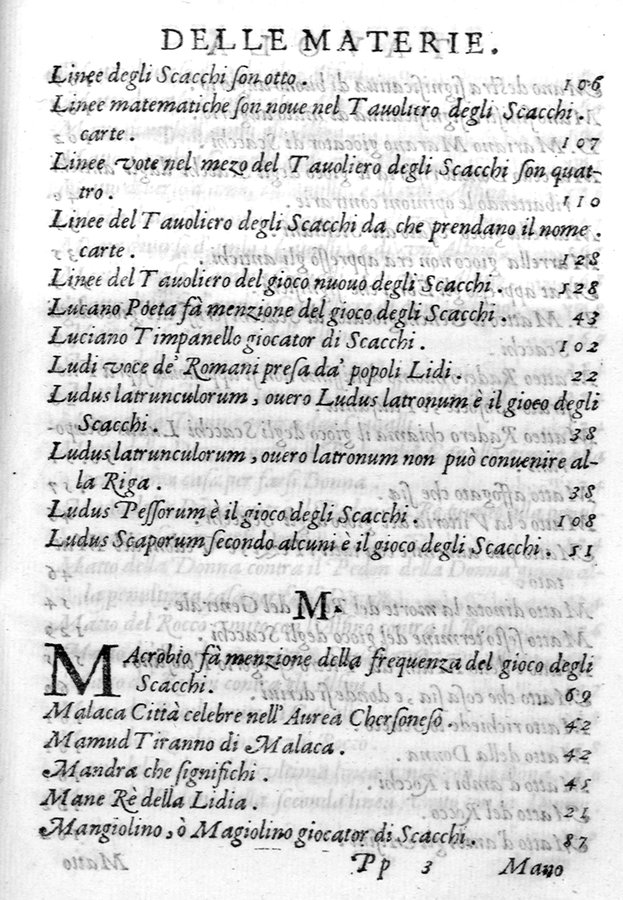 DELLE MATERIE.
Linee degli Scacchi ſon otto. 106
Linee matematiche ſon noue nel Tauoliero degli Scacchi.
carte. 107
Linee vote nel mezo del Tauoliero degli Scacchi ſon quat-
tro. 110
Linee del Tauoliero degli Scacchi da che prendano il nome.
carte. 128
Linee del Tauoliero del gioco nuouo degli Scacchi. 128
Lucano Poeta fà menzione del gioco degli Scacchi. 43
Luciano Timpanello giocator di Scacchi. 102
Ludi voce de' Romani preſa da' popoli Lidi. 22
Ludus latrunculorum, ouero Ludus latronum è il gioco degli
Scacchi. 38
Ludus latrunculorum, ouero latronum non può conuenire al-
la Riga. 38
Ludus Peſſorum è il gioco degli Scacchi. 108
Ludus Scaporum ſecondo alcuni è il gioco degli Scacchi. 51
M.
MAcrobio fà menzione della frequenza del gioco degli
Scacchi. 69
Malaca Città celebre nell'Aurea Cherſoneſo. 42
Mamud Tiranno di Malaca. 42
Mandra che ſignifichi. 41
Mane Rè della Lidia. 21
Mangiolino, ò Magiolino giocator di Scacchi. 87
Pp 3 Mano